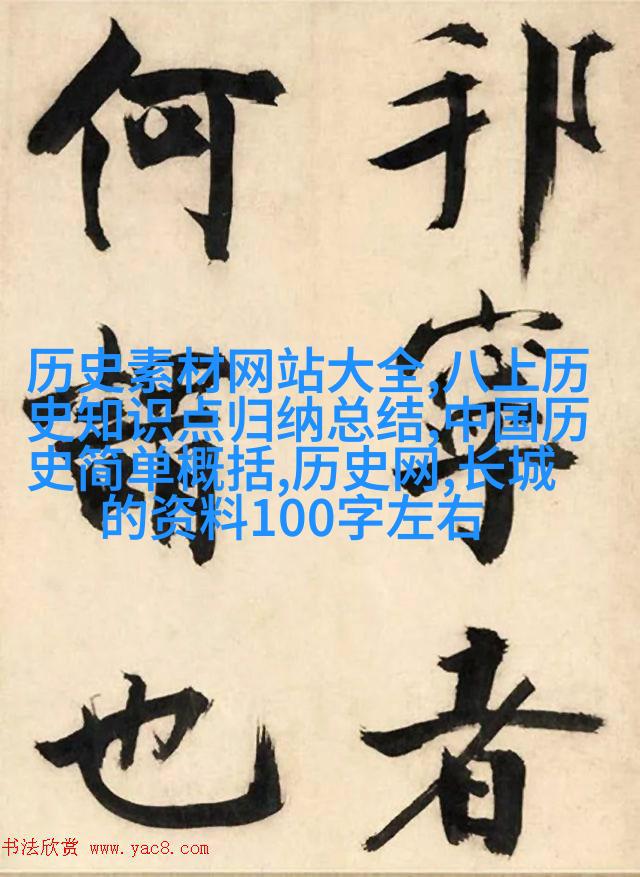 邦寧者
何謂也
历史素材网站大全,八上历
史知识点归纳总结,中国历
史简单概括,历史网,长城
的资料100字左右
书法欣赏 www.yac8.com